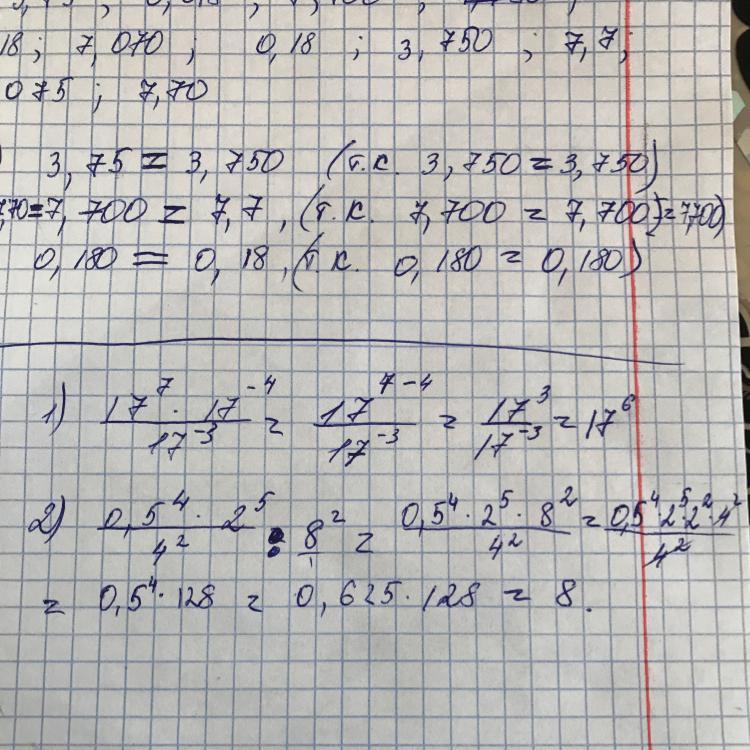 18; 7,070; 0,18; 3,750; 7,7;
075; 7,70
3,75 = 3,750 (т.к. 3,750 = 3,750)
7,70=7,700 = 7,7, (т.к. 7,700 = 7,700)=7,700)
0,180 = 0,18, (т.к. 0,180 = 0,180)
1) 17⁷ · 17⁻⁴ / 17⁻³ = 17⁷⁻⁴ / 17⁻³ = 17³ / 17⁻³ = 17⁶
2) 0,5⁴ · 2⁵ / 4² : 8² / 1 = 0,5⁴ · 2⁵ · 8² / 4² = 0,5⁴·2⁵·2²·4² / 4²
= 0,5⁴ · 128 = 0,625 · 128 = 8.